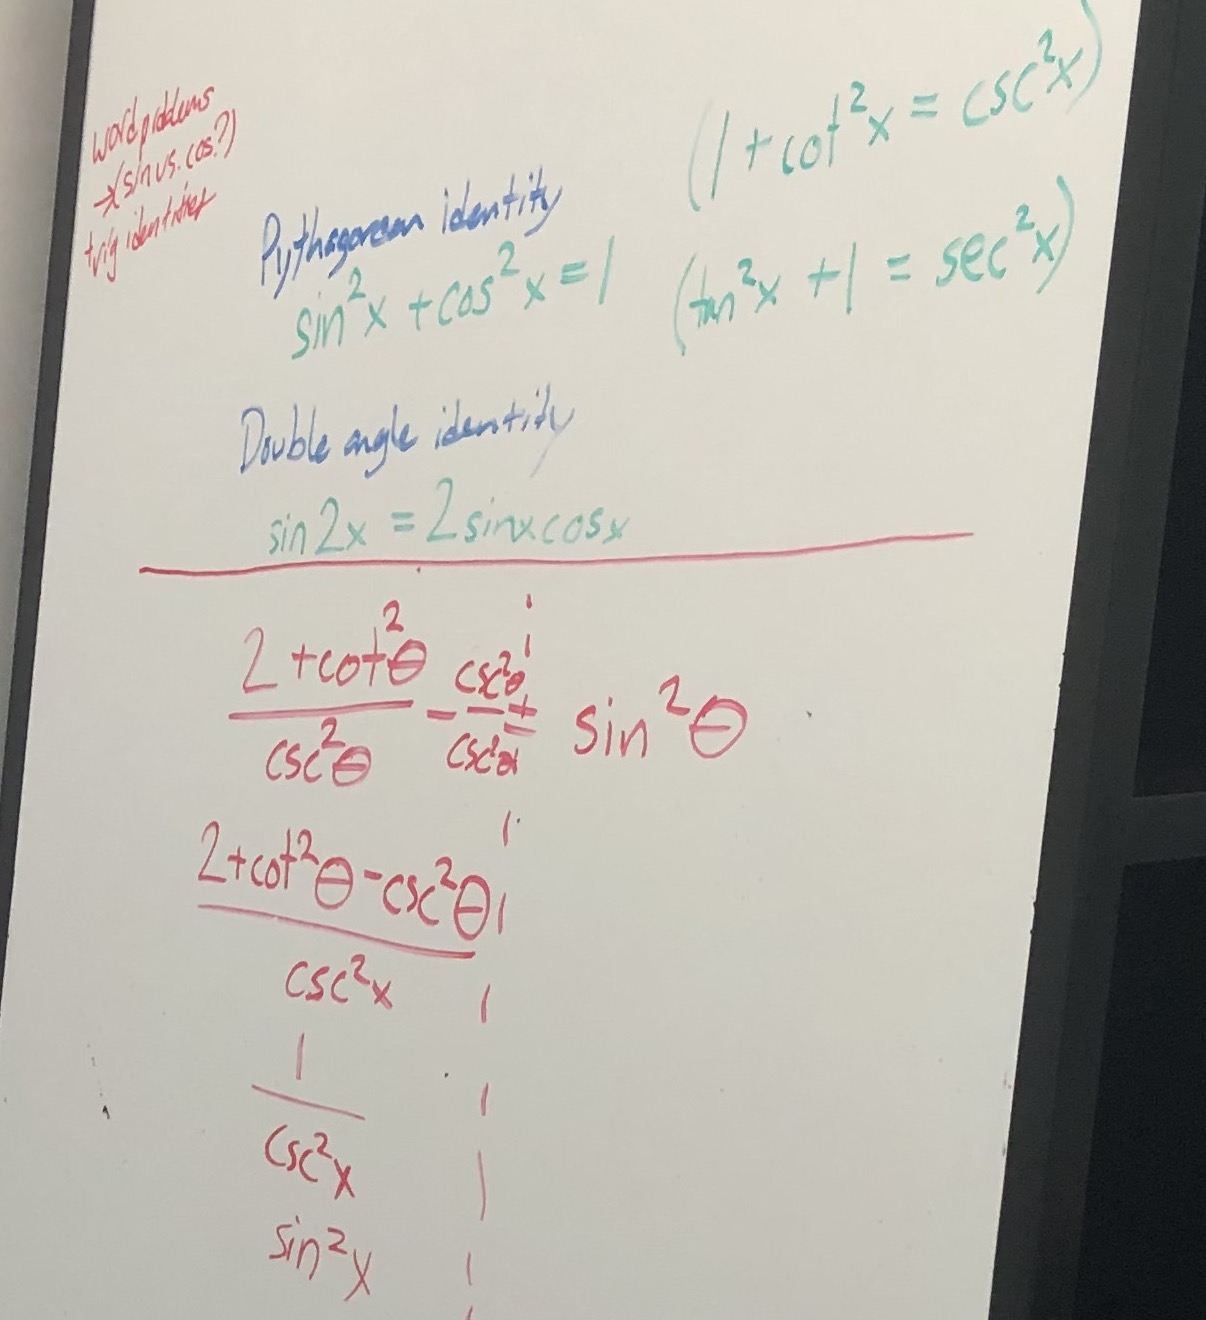 word problems
→(sin vs. cos?)
trig identities
(1 + cot²x = csc²x)
Pythagorean identity
sin²x + cos²x = 1
(tan²x + 1 = sec²x)
Double angle identity
sin2x = 2sinxcosx
2 + cot²θ
csc²θ
- csc²θ
csc²θ
= sin²θ
2+cot²θ-csc²θ
csc²x
1
csc²x
sin²x